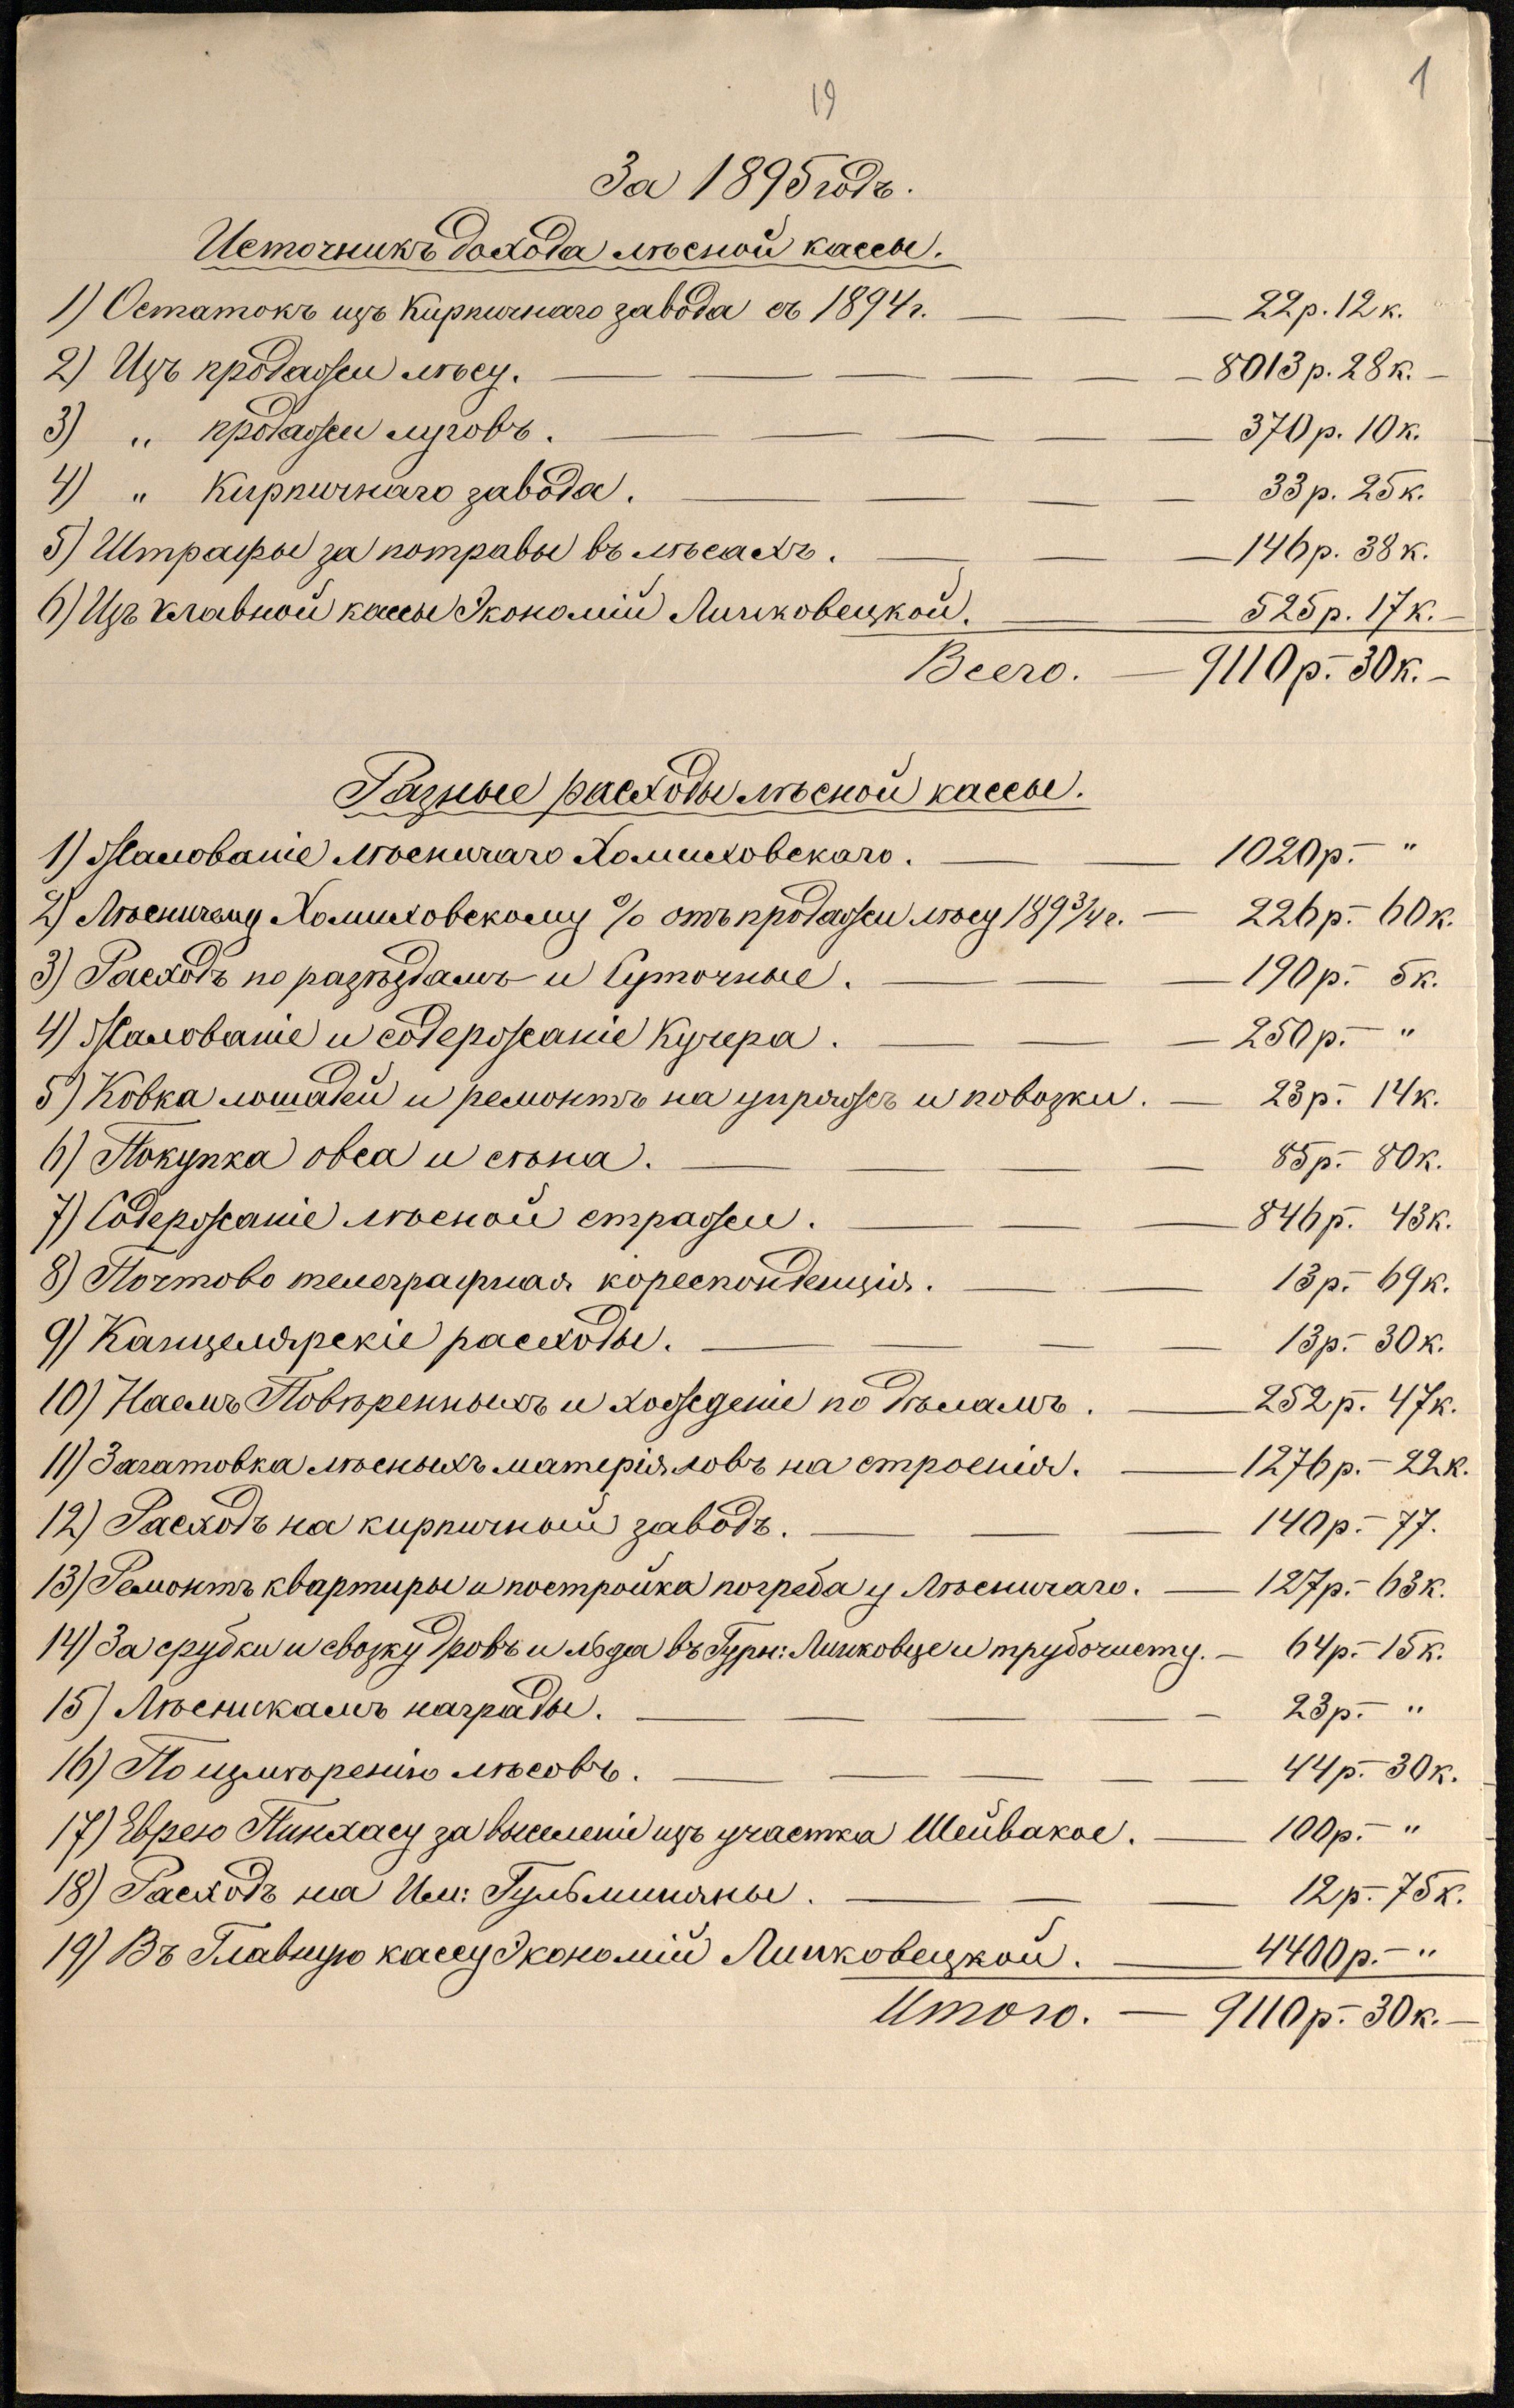 19
1
За 1895 годъ.
Источникъ дохода лѣсной кассы.
1) Остатокъ изъ Кирпичнаго завода съ 1894 г. — — — 22 р. 12 к.
2) Изъ продажи лѣсу. — — — — — — 8013 р. 28 к. —
3) „ продажи луговъ. — — — — — 370 р. 10 к.
4) „ Кирпичнаго завода. — — — — 33 р. 25 к.
5) Штрафы за потравы въ лѣсахъ. — — — 146 р. 38 к.
6) Изъ главной кассы Экономіи Личковецкой. — — 525 р. 17 к. —
Всего. — 9110 р. — 30 к. —
Разные расходы лѣсной кассы.
1) Жалованіе лѣсничаго Хомиховскаго. — — 1020 р. — „
2) Лѣсничему Хомиховскому % отъ продажи лѣсу 189¾ г. — 226 р. — 60 к.
3) Расходъ по разъѣздамъ и Суточные. — — — 190 р. — 5 к.
4) Жалованіе и содержаніе Кучера. — — — 250 р. — „
5) Ковка лошадей и ремонтъ на упряжь и повозки. — 23 р. — 14 к.
6) Покупка овса и сѣна. — — — — 85 р. — 80 к.
7) Содержаніе лѣсной стражи. — — — 846 р. — 43 к.
8) Почтово телеграфная кореспонденція. — — 13 р. — 69 к.
9) Канцелярскіе расходы. — — — — 13 р. — 30 к.
10) Наемъ Повѣренныхъ и хожденіе по дѣламъ. — 252 р. — 47 к.
11) Загатовка лѣсныхъ матеріяловъ на строенія. — 1276 р. — 22 к.
12) Расходъ на кирпичный заводъ. — — — 140 р. — 77.
13) Ремонтъ квартиры и постройка погреба у Лѣсничаго. — 127 р. — 63 к.
14) За срубки и свозку дровъ и льда въ Гурн: Личковце и трубочисту. — 64 р. — 15 к.
15) Лѣсникамъ награды. — — — — — 23 р. — „
16) По измѣренію лѣсовъ. — — — — — 44 р. — 30 к.
17) Еврею Пинхасу за выселеніе изъ участка Шейвакое. — 100 р. — „
18) Расходъ на Им: Гульбминяны. — — — 12 р. — 75 к.
19) Въ Главную кассу Экономіи Личковецкой. — 4400 р. — „
Итого. — 9110 р. — 30 к. —